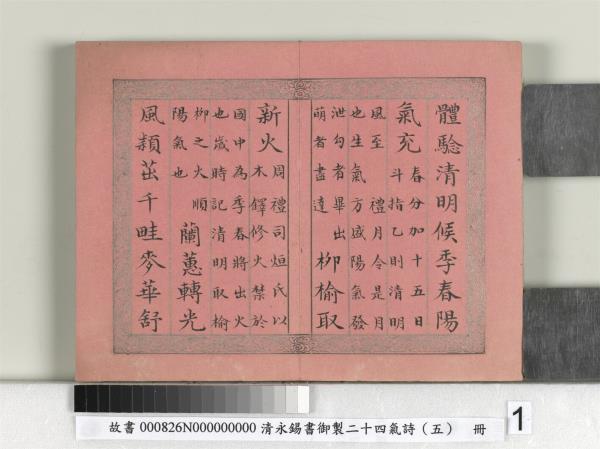 體驗清明候季春陽
氣充春分加十五日
斗指乙則清明
風至 禮月令是月
也生氣方盛陽氣發
泄勾者畢出
萌者盡達柳榆取
新火周禮司烜氏以
木鐸修火禁於
國中為季春將出火
也歲時記清明取榆
柳之火順
陽氣也蘭蕙轉光
風頴茁千畦麥華舒
故書 000826N000000000 清永錫書御製二十四氣詩（五） 冊
1